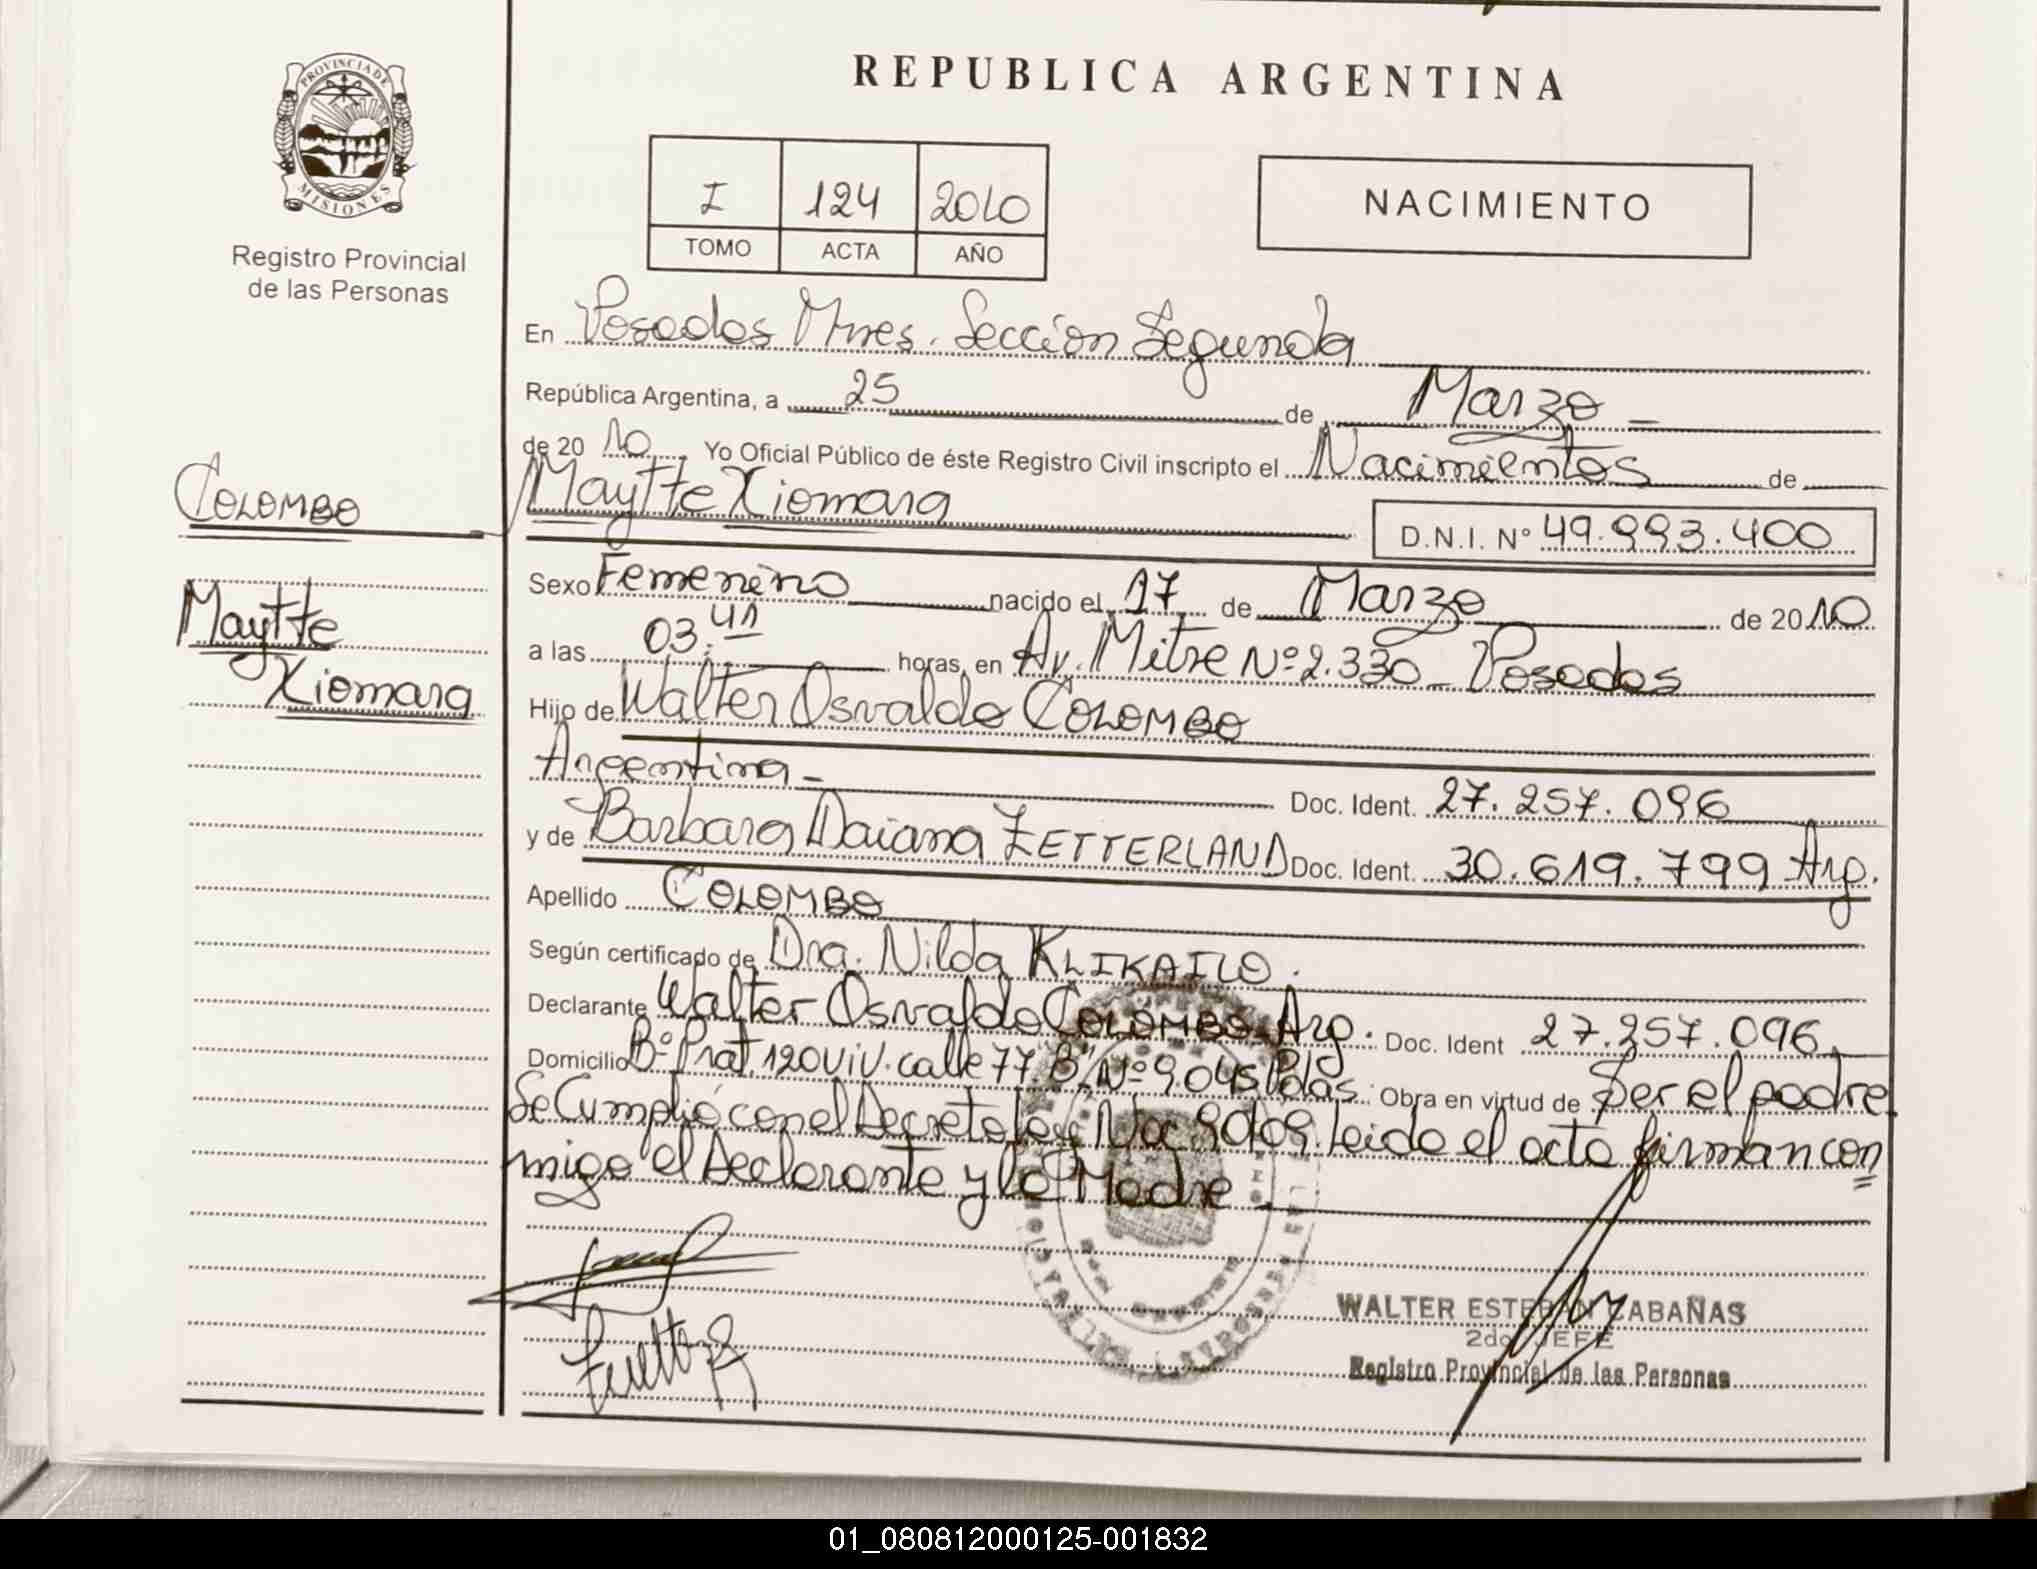 REPUBLICA ARGENTINA
PROVINCIA DE MISIONES
Registro Provincial
de las Personas
I 124 2010
TOMO ACTA AÑO
NACIMIENTO
En Posadas Mnes. Sección Segunda
República Argentina, a 25 de Marzo
de 2010 Yo Oficial Público de éste Registro Civil inscripto el Nacimientos de
COLOMBO
Maytte Xiomara
D.N.I. Nº 49.993.400
Maytte
Xiomara
Sexo Femenino nacido el 17 de Marzo de 2010
a las 03:41 horas, en Av. Mitre Nº 2.330 - Posadas
Hijo de Walter Osvaldo COLOMBO
Argentina - Doc. Ident. 27.257.096
y de Barbara Daiana ZETTERLAND Doc. Ident. 30.619.799 Arg.
Apellido COLOMBO
Según certificado de Dra. Nilda KLIKAILO.
Declarante Walter Osvaldo COLOMBO Arg. Doc. Ident 27.257.096
Domicilio Bº Prat. 120 Viv. calle 77 "B" Nº 9.045 Pdas. Obra en virtud de Ser el padre
Se Cumplió con el Decreto ley Nº 90/09. Leido el acta firman con
migo el Declarante y la Madre
WALTER ESTEBAN CABAÑAS
2do JEFE
Registro Provincial de las Personas
01_080812000125-001832